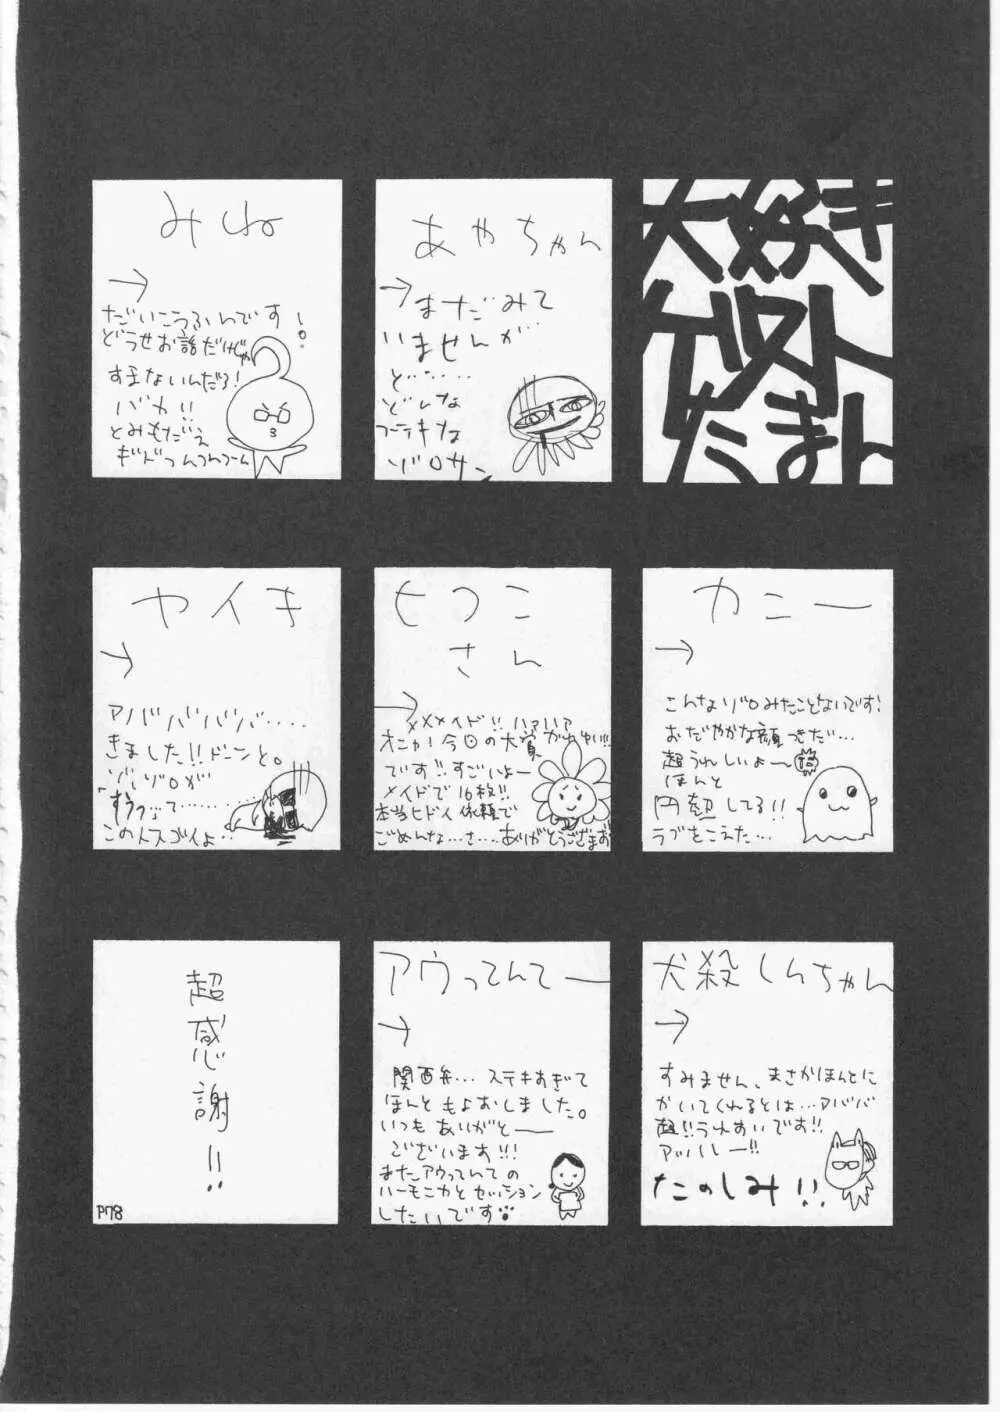 大好き
ゲスト
たまん
あやちゃん
→
まだみて
いませんが…
ど……
どんな
ステキな
ゾロサン
みね
→
だいこうふんです!
どうせお話だけじゃ
すまないんだろ!
バカ!!
とみもだえ
カニー
→
こんなゾロみたことないです!
おだやかな顔つきだ…
超うれしいよ〜
ほんと
円熟してる!!
ラブをこえた…
ヒフミ
さん
→
メメメイド!! ハァハァ
です!!すごいよー
メイドで16枚!!
本当ヒドイ依頼で
ごめんな…さ…ありがとうござます
ヤイキ
→
アババババ....
きました!!ドーンと。
ゾ、ゾロが
「すうっ」って……
この人スゴイよ…
犬殺しんちゃん
→
すみません、まさかほんとに
かいてくれるとは…アババ
超!!うれすいです!!
アッハレー!!
たのしみ!!
アウってんてー
→
関西弁… ステキすぎて
ほんともよおしました。
いつもありがとー
ございます!!!
またアウってんての
ハーモニカとセッション
したいです
超
感
謝
!!
P78